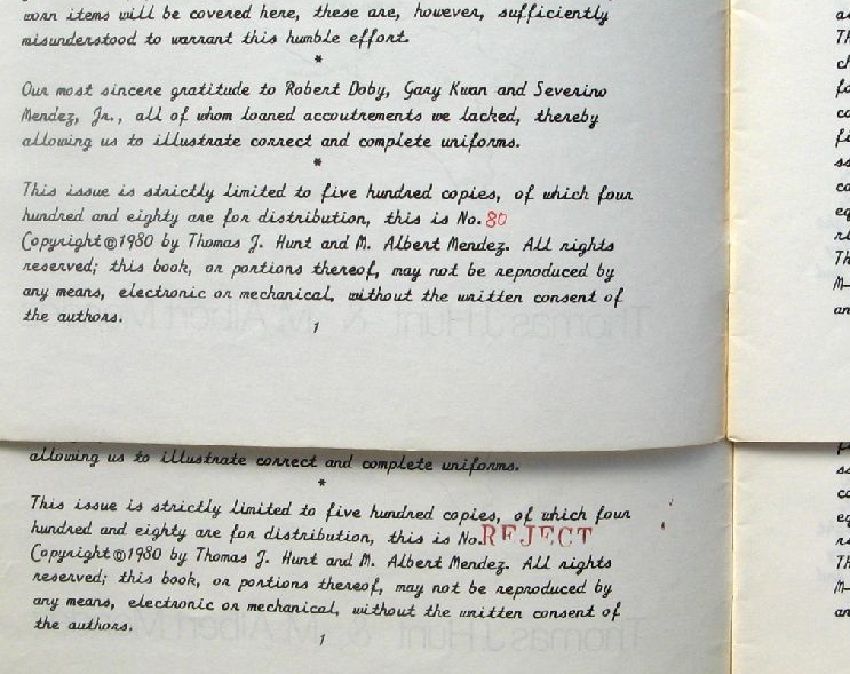 worn items will be covered here, these are, however, sufficiently
misunderstood to warrant this humble effort.
*
Our most sincere gratitude to Robert Doby, Gary Kwan and Severino
Mendez, Jr., all of whom loaned accoutrements we lacked, thereby
allowing us to illustrate correct and complete uniforms.
*
This issue is strictly limited to five hundred copies, of which four
hundred and eighty are for distribution, this is No. 80
Copyright©1980 by Thomas J. Hunt and M. Albert Mendez. All rights
reserved; this book, or portions thereof, may not be reproduced by
any means, electronic or mechanical, without the written consent of
the authors.
1
allowing us to illustrate correct and complete uniforms.
*
This issue is strictly limited to five hundred copies, of which four
hundred and eighty are for distribution, this is No. REJECT
Copyright©1980 by Thomas J. Hunt and M. Albert Mendez. All rights
reserved; this book, or portions thereof, may not be reproduced by
any means, electronic or mechanical, without the written consent of
the authors.
1